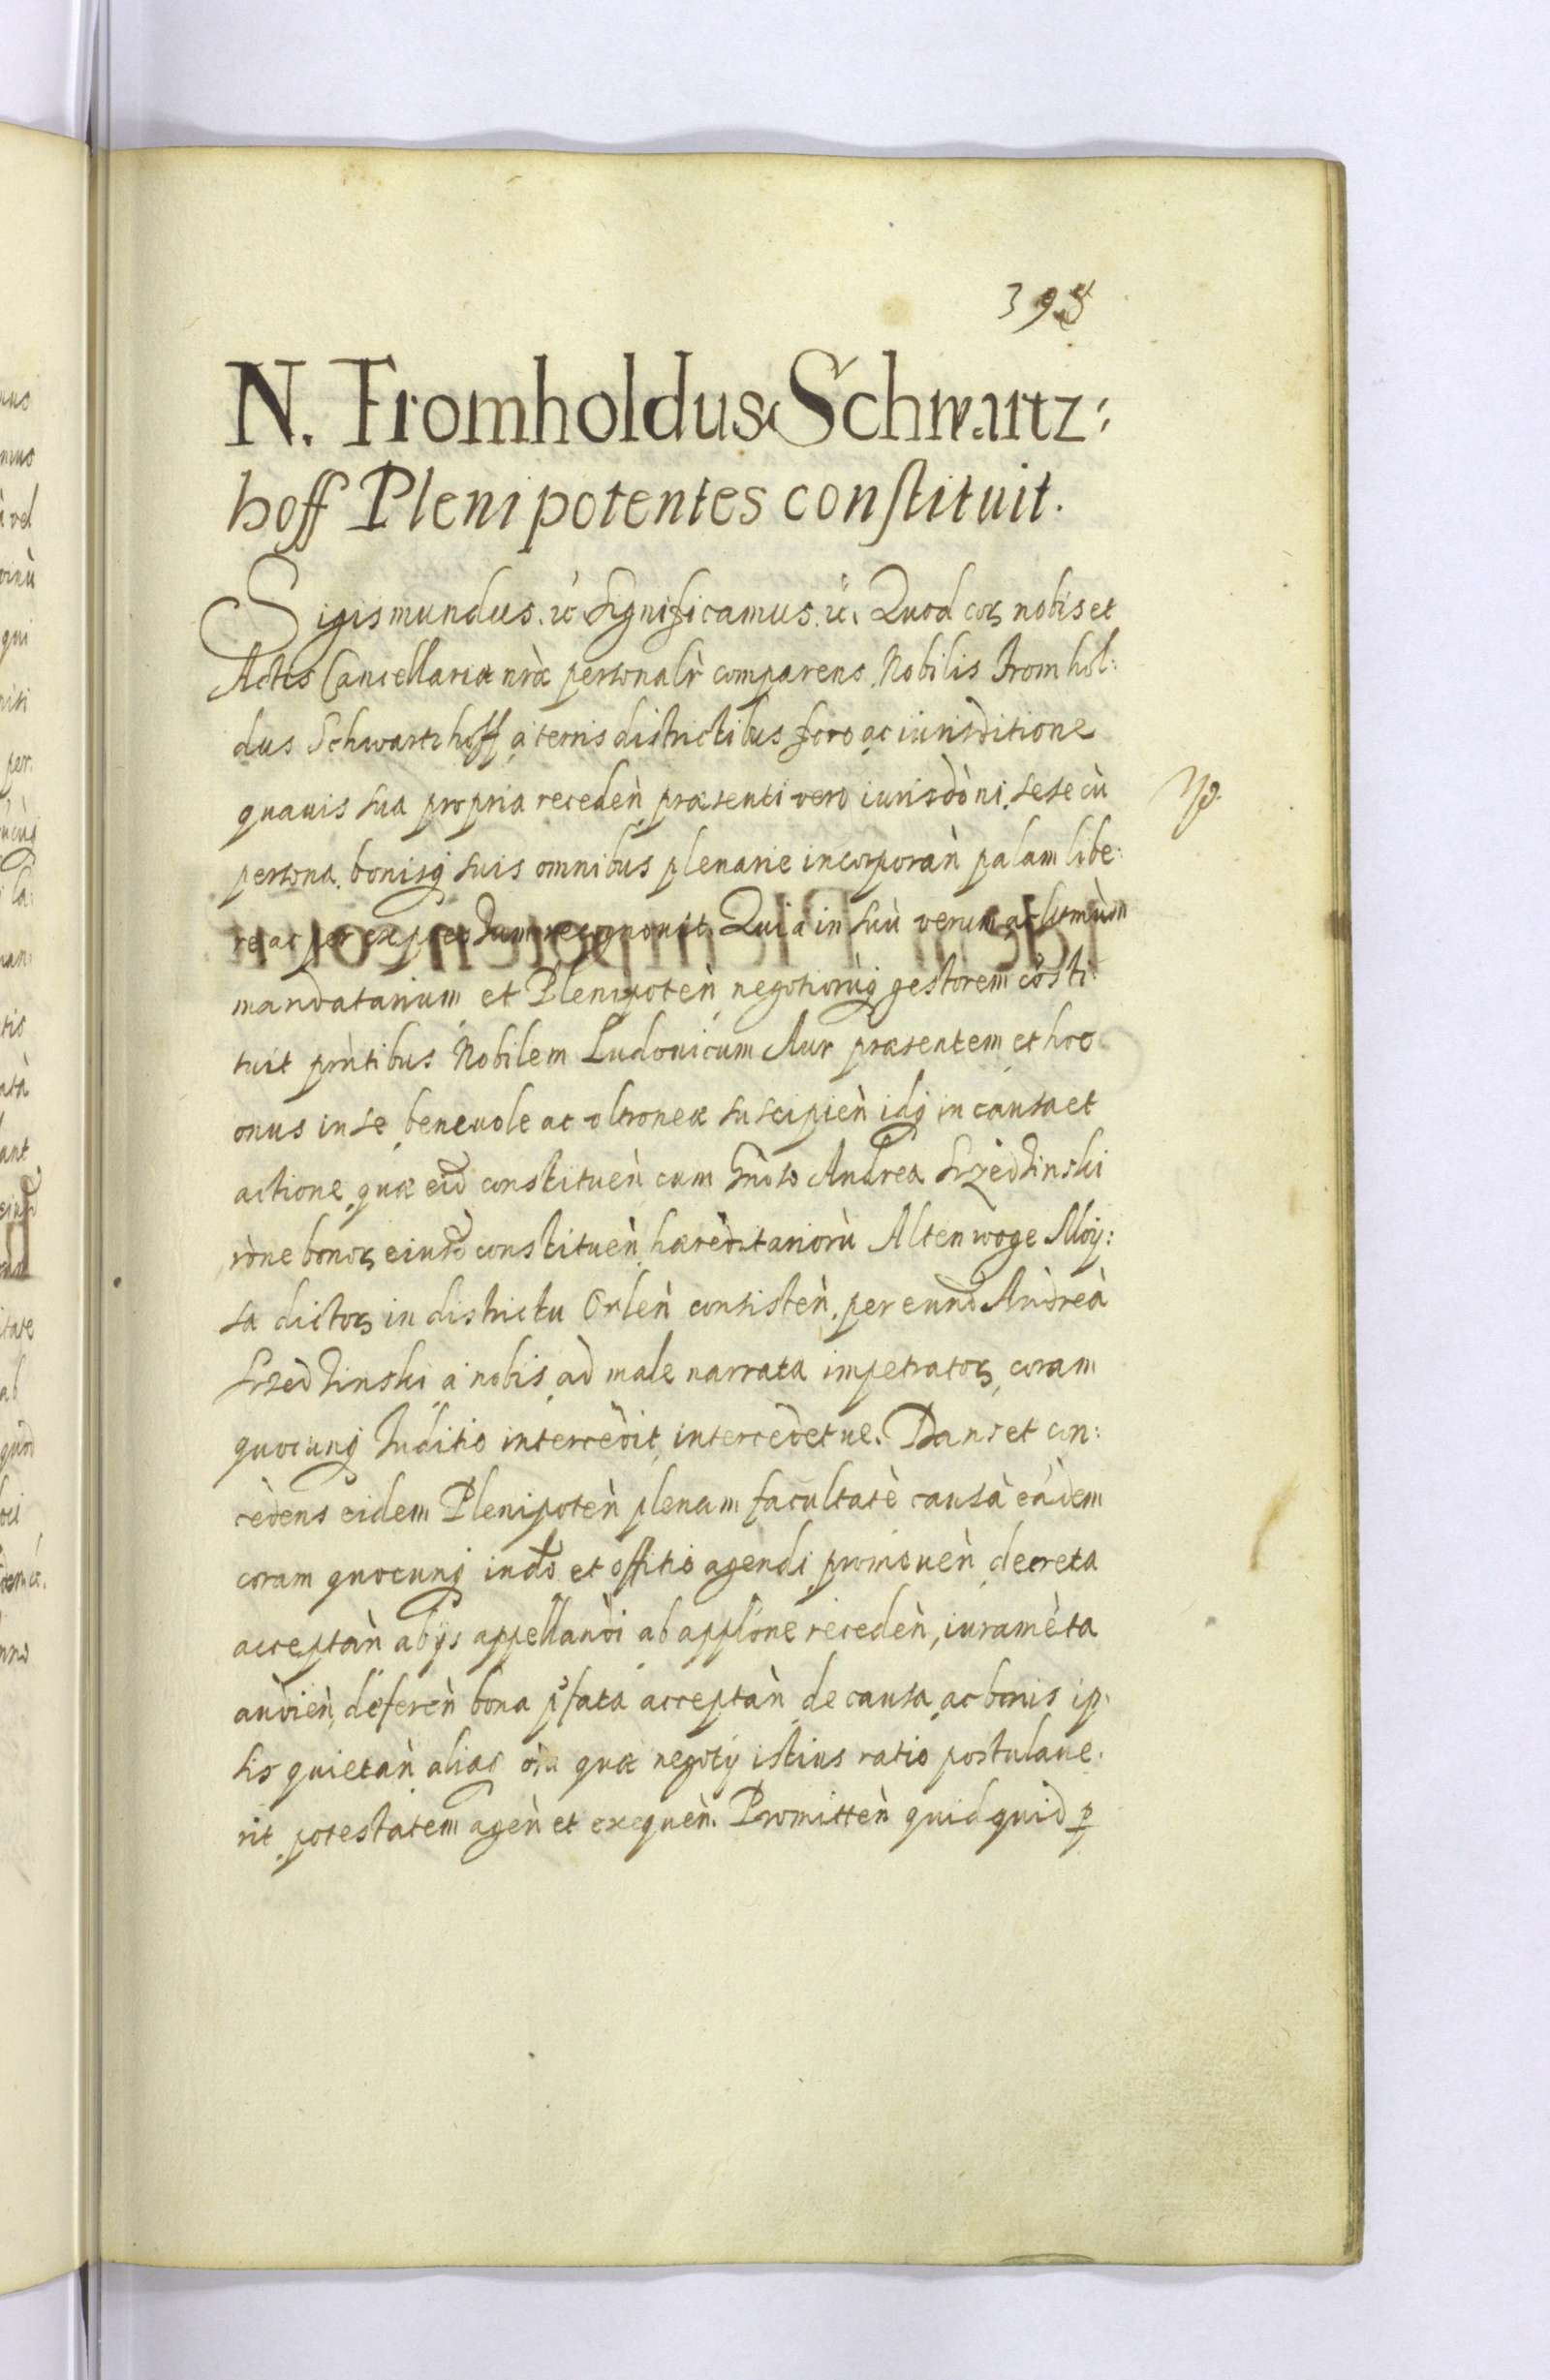 398
N. Fromholdus Schwartz:
hoff Plenipotentes constituit.
Sigismundus. ec Significamus. ec. Quod coꝝ nobis et
Actis Cancellariæ nr̀æ personalr̀ comparens Nobilis Fromhol:
dus Schwartzhoff a terris districtibus foro ac iurisditione
quauis sua propria recedeǹ præsenti vero iurisdòni sese cù
persona bonisq suis omnibus plenarie incorporaǹ palam libe:
re ac per expressum recognouit Quia in suù verum ac ltmùm
mandatarium et Plenipoteǹ negotiorùq gestorem còsti:
tuit prǹtibus Nobilem Ludouicum Aur præsentem et hoc
onus in se beneuole ac oltroneæ suscipieǹ idq in causa et
actione quæ eid constitueǹ cum Gnòso Andrea Srzedzinski
ròne bonoꝝ eiusd constitueǹ hærèditariorù Altenwoge Moy:
sa dictoꝝ in districtu Orleǹ consisteǹ per eund Andreà
Srzedzinski a nobis ad male narrata impetratoꝝ coram
quocunq Juditio intercedit intercedetue. Dans et con:
cedens eidem Plenipoteǹ plenam facultatè causà eàdem
coram quocunq indò et offitio agendi promoueǹ decreta
acceptaǹ ab ijs appellandi ab applòne recedeǹ, iuramèta
audieǹ, defereǹ bona pfata acceptaǹ de causa ac bonis ip:
sis quietaǹ alias oìa quæ negotij istius ratio postulaue:
rit potestatem ageǹ et exequeǹ. Promitteǹ quidquid ꝑ